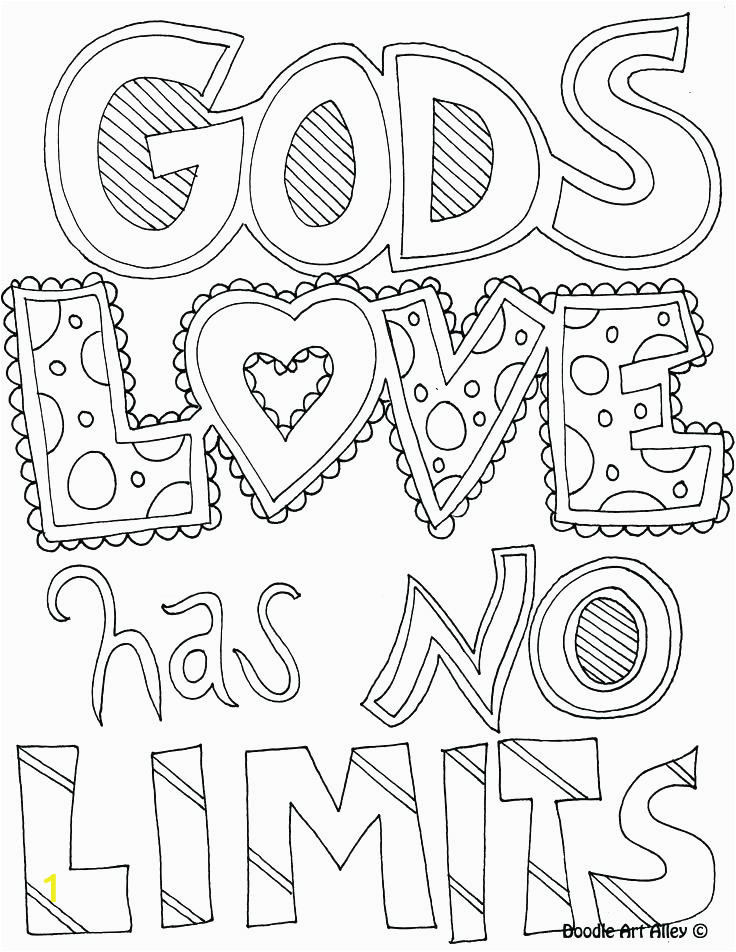 GODS
LOVE
has NO
LIMITS
1
Doodle Art Alley ©